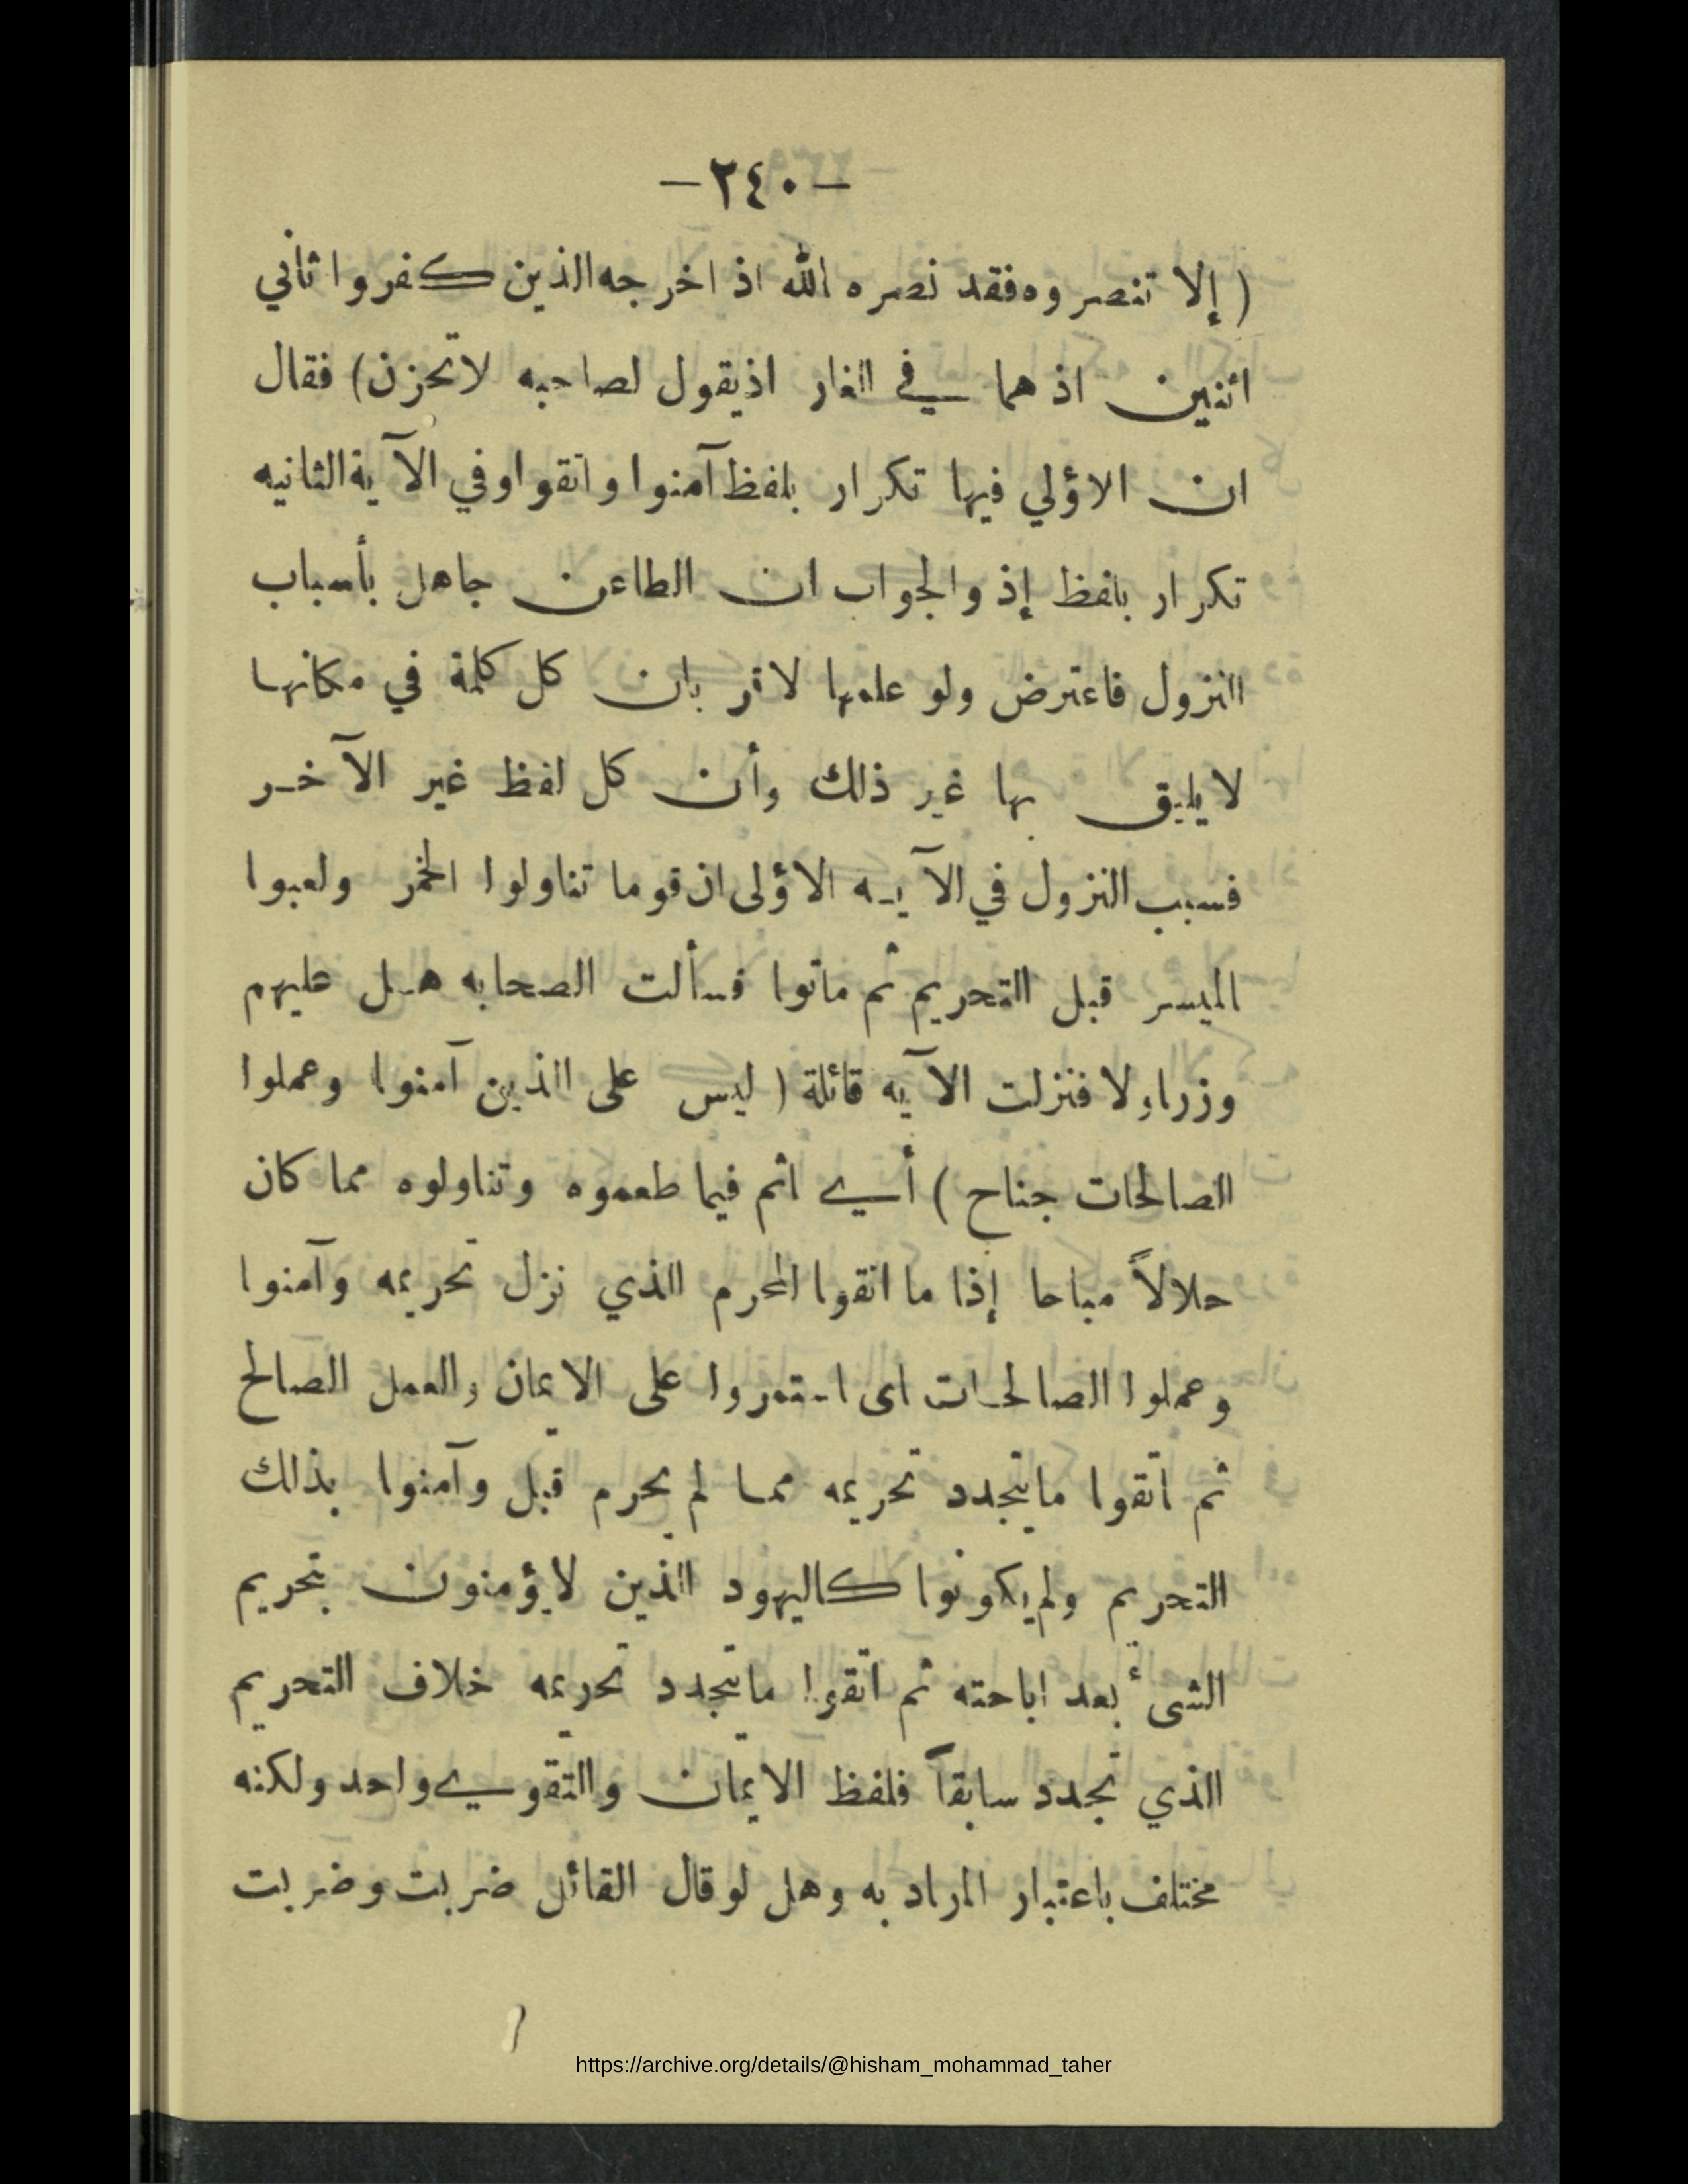 -٢٤٠-
( إلا تنصروه فقد نصره الله اذ اخرجه الذين كفروا ثاني
اثنين اذ هما في الغار اذ يقول لصاحبه لا تحزن) فقال
ان الاؤلي فيها تكرار بلفظ آمنوا واتقوا وفي الآية الثانيه
تكرار بلفظ إذ والجواب ان الطاعن جاهل بأسباب
النزول فاعترض ولو علمها لاقر بان كل كلمة في مكانها
لا يليق بها غير ذلك وأن كل لفظ غير الآخر
فسبب النزول في الآيه الاؤلى ان قوما تناولوا الخمر ولعبوا
الميسر قبل التحريم ثم ماتوا فسألت الصحابه هل عليهم
وزراولا فنزلت الآيه قائلة ( ليس على الذين آمنوا وعملوا
الصالحات جناح ) أي اثم فيما طعموه وتناولوه مما كان
حلالاً مباحا إذا ما اتقوا المحرم الذي نزل تحريمه وآمنوا
وعملوا الصالحات اى استمروا على الايمان والعمل الصالح
ثم اتقوا ما يتجدد تحريمه مما لم يحرم قبل وآمنوا بذلك
التحريم ولم يكونوا كاليهود الذين لا يؤمنون بتحريم
الشىء بعد اباحته ثم اتقوا ما يتجدد تحريمه خلاف التحريم
الذي تجدد سابقاً فلفظ الايمان والتقوي واحد ولكنه
مختلف باعتبار المراد به وهل لو قال القائل ضربت وضربت
https://archive.org/details/@hisham_mohammad_taher